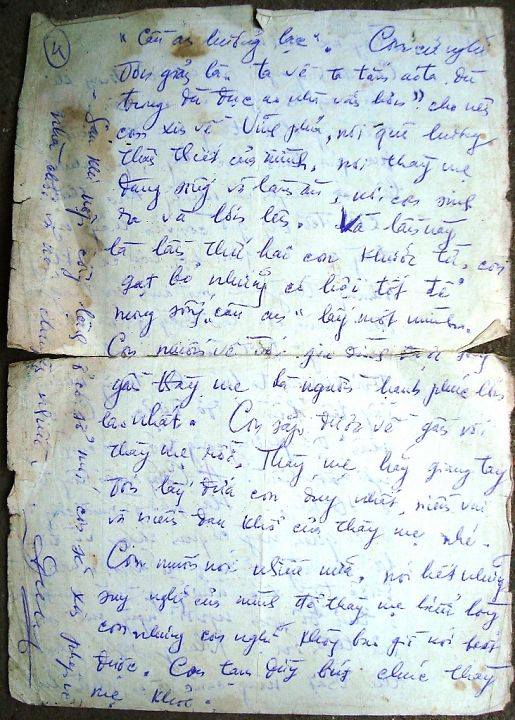 4
"Cầu an hưởng lạc". Con cứ nghĩ
ta về ta tắm ao ta dù
trong dù đục ao nhà vẫn hơn" cho nên
con xin về Vĩnh phú, nơi quê hương
tha thiết của mình, nơi thầy mẹ
đang sống và làm ăn, nơi con sinh
ra và lớn lên. Và lần này
là lần thứ hai con khước từ, con
gạt bỏ những cơ hội tốt để
mong sống "cầu an" lấy một mình.
Con muốn về với gia đình được sống
gần thầy mẹ là người hạnh phúc lớn
lao nhất. Con sắp được về gần với
thầy mẹ rồi. Thầy mẹ hãy giang tay
đón lấy đứa con duy nhất, niềm vui
và niềm đau khổ của thầy mẹ nhé.
Con muốn nói nhiều nữa, nói hết những
suy nghĩ của mình để thầy mẹ hiểu lòng
con nhưng con nghĩ không bao giờ nói hết
được. Con tạm dừng bút chúc thầy
mẹ khỏe.
- Sau khi nộp công bằng ở cơ sở mới con sẽ xin phép về
nhà